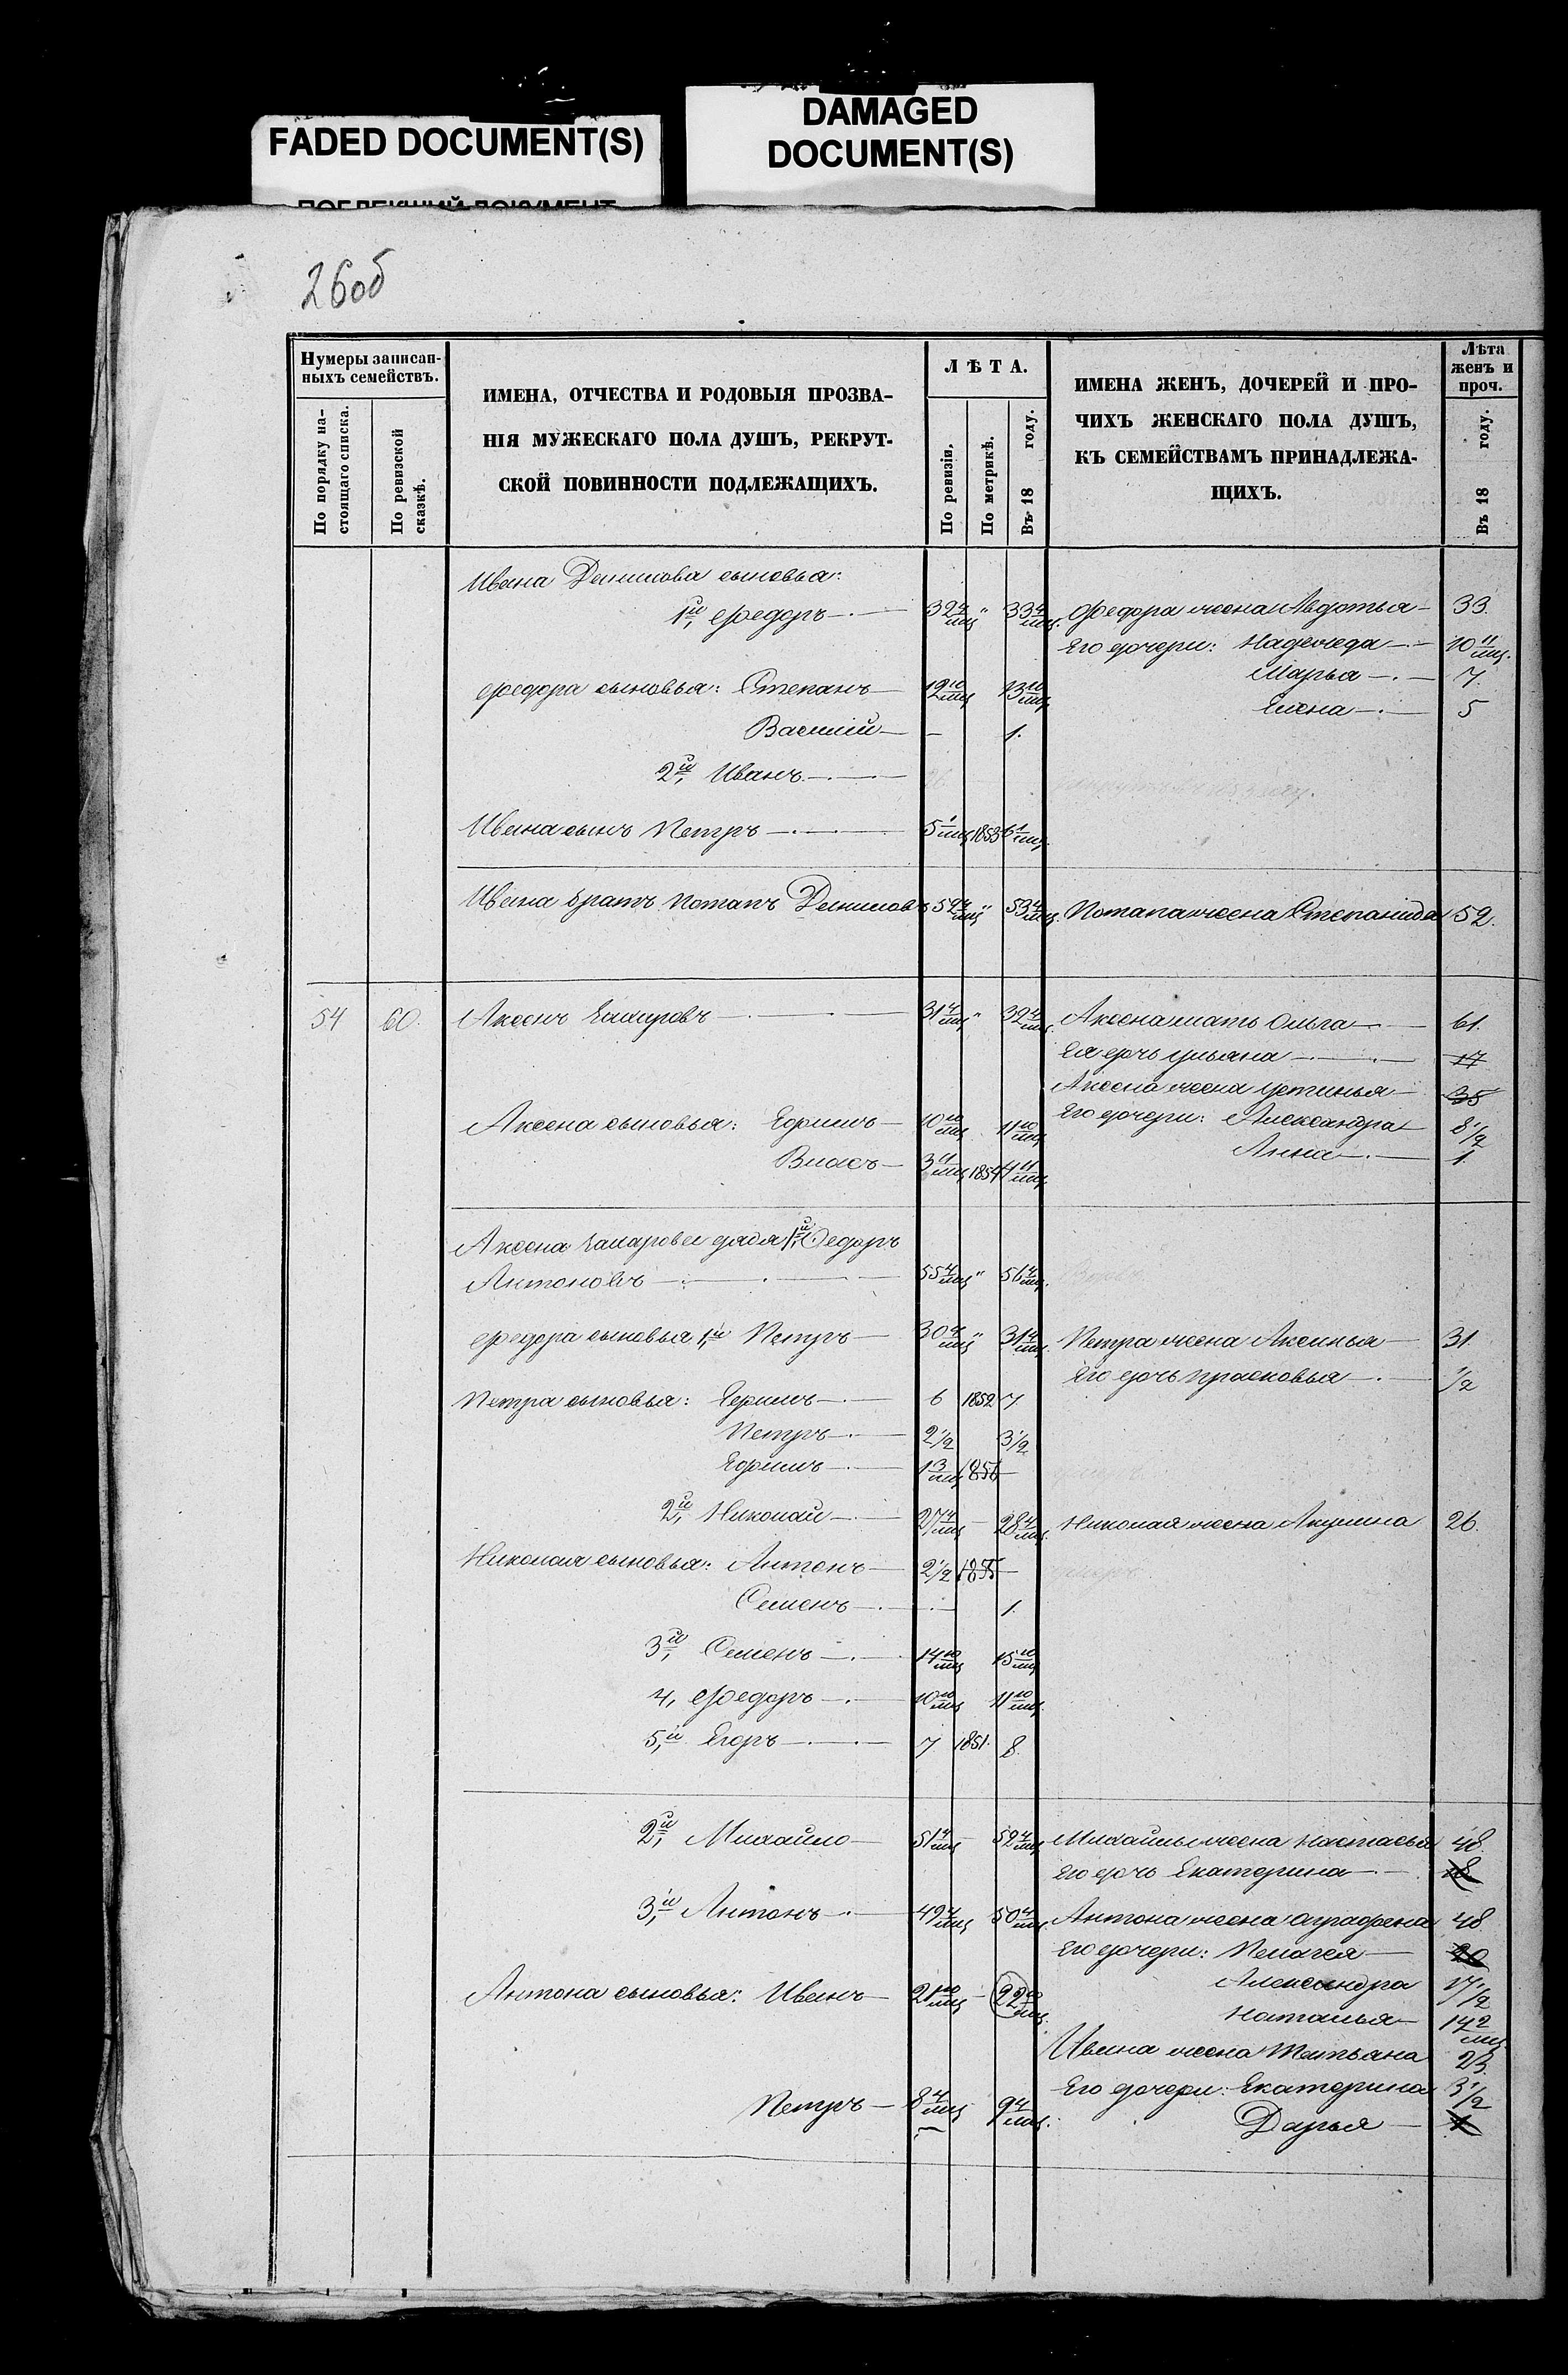 FADED DOCUMENT(S)
DAMAGED
DOCUMENT(S)
26об
Нумеры записан-
ныхъ семействъ.
По порядку на-
стоящаго списка.
По ревизской
сказкѣ.
ИМЕНА, ОТЧЕСТВА И РОДОВЫЯ ПРОЗВА-
НІЯ МУЖЕСКАГО ПОЛА ДУШЪ, РЕКРУТ-
СКОЙ ПОВИННОСТИ ПОДЛЕЖАЩИХЪ.
ЛѢТА.
По ревизіи.
По метрикѣ.
Въ 18 году.
ИМЕНА ЖЕНЪ, ДОЧЕРЕЙ И ПРО-
ЧИХЪ ЖЕНСКАГО ПОЛА ДУШЪ,
КЪ СЕМЕЙСТВАМЪ ПРИНАДЛЕЖА-
ЩИХЪ.
Лѣта
женъ и
проч.
Въ 18 году.
Ивана Данилова сыновья:
1й, Федоръ 32 4/мц " 33 4/мц. Федора жена Авдотья 33.
Его дочери: Надежда 10 11/мц.
Марья 7.
Федора сыновья: Степанъ 12 10/мц 13 10/мц
Елена 5
Василій — 1.
2й, Иванъ
Ивана сынъ Петръ 5 1/мц 1853 6 1/мц.
Ивана братъ Потапъ Даниловъ 52 4/мц " 53 4/мц. Потапа жена Степанида 52.
54 60. Аксенъ Захаровъ 31 4/мц " 32 4/мц. Аксена мать Ольга 61.
Ея дочь Ульяна 17
Аксена жена Устинья 35
Аксена сыновья: Ефимъ 10 10/мц 11 10/мц Его дочери: Александра 8 1/2
Анна 1.
Власъ 3 11/мц 1854 4 11/мц.
Аксена Захарова дядя 1й, Федоръ
Антоновъ 55 4/мц " 56 4/мц.
Федора сыновья 1й, Петръ 30 4/мц " 31 4/мц. Петра жена Аксинья 31.
Его дочь Прасковья 1/2
Петра сыновья: 6 1852 7.
Петръ 2 1/2 3 1/2
Ефимъ 1 3/мц 1856 —
2й, Николай 27 4/мц — 28 4/мц. Николая жена Акулина 26.
Николая сыновья: Антонъ 2 1/2 1855 —
Семенъ — 1.
3й, Семенъ 14 10/мц 15 10/мц
4, Федоръ 10 10/мц 11 10/мц.
5,й Егоръ 7 1851. 8.
2й, Михайло 51 4/мц — 52 4/мц. Михайлы жена Настасья 48.
Его дочь Екатерина 18
3,й Антонъ 49 4/мц 50 4/мц. Антона жена Аграфена 48
Его дочери: Пелагея 20
Александра 17 1/2
Антона сыновья: Иванъ 21 10/мц — 22 10/мц.
Наталья 14 2/мц
Ивана жена Татьяна 23.
Его дочери: Екатерина 3 1/2
Петръ 8 4/мц 9 4/мц.
Дарья 1